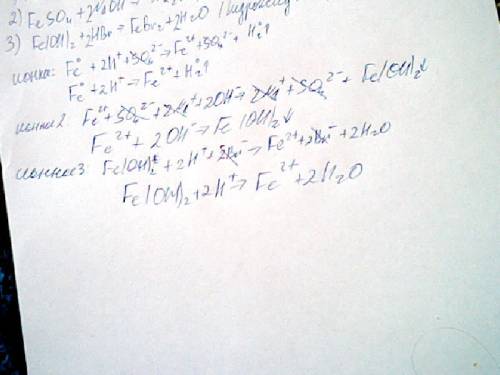 2) FeSO4 + 2NaOH →
3) Fe(OH)2 + 2HBr = FeBr2 + 2H2O
Fe⁰ + 2H⁺ + SO4²⁻ → Fe²⁺ + SO4²⁻ + H2⁰↑
Fe⁰ + 2H⁺ → Fe²⁺ + H2⁰↑
Fe²⁺ + SO4²⁻ + 2Na⁺ + 2OH⁻ → 2Na⁺ + SO4²⁻ + Fe(OH)2↓
Fe²⁺ + 2OH⁻ → Fe(OH)2↓
Fe(OH)2 + 2H⁺ + 2Br⁻ → Fe²⁺ + 2Br⁻ + 2H2O
Fe(OH)2 + 2H⁺ → Fe²⁺ + 2H2O